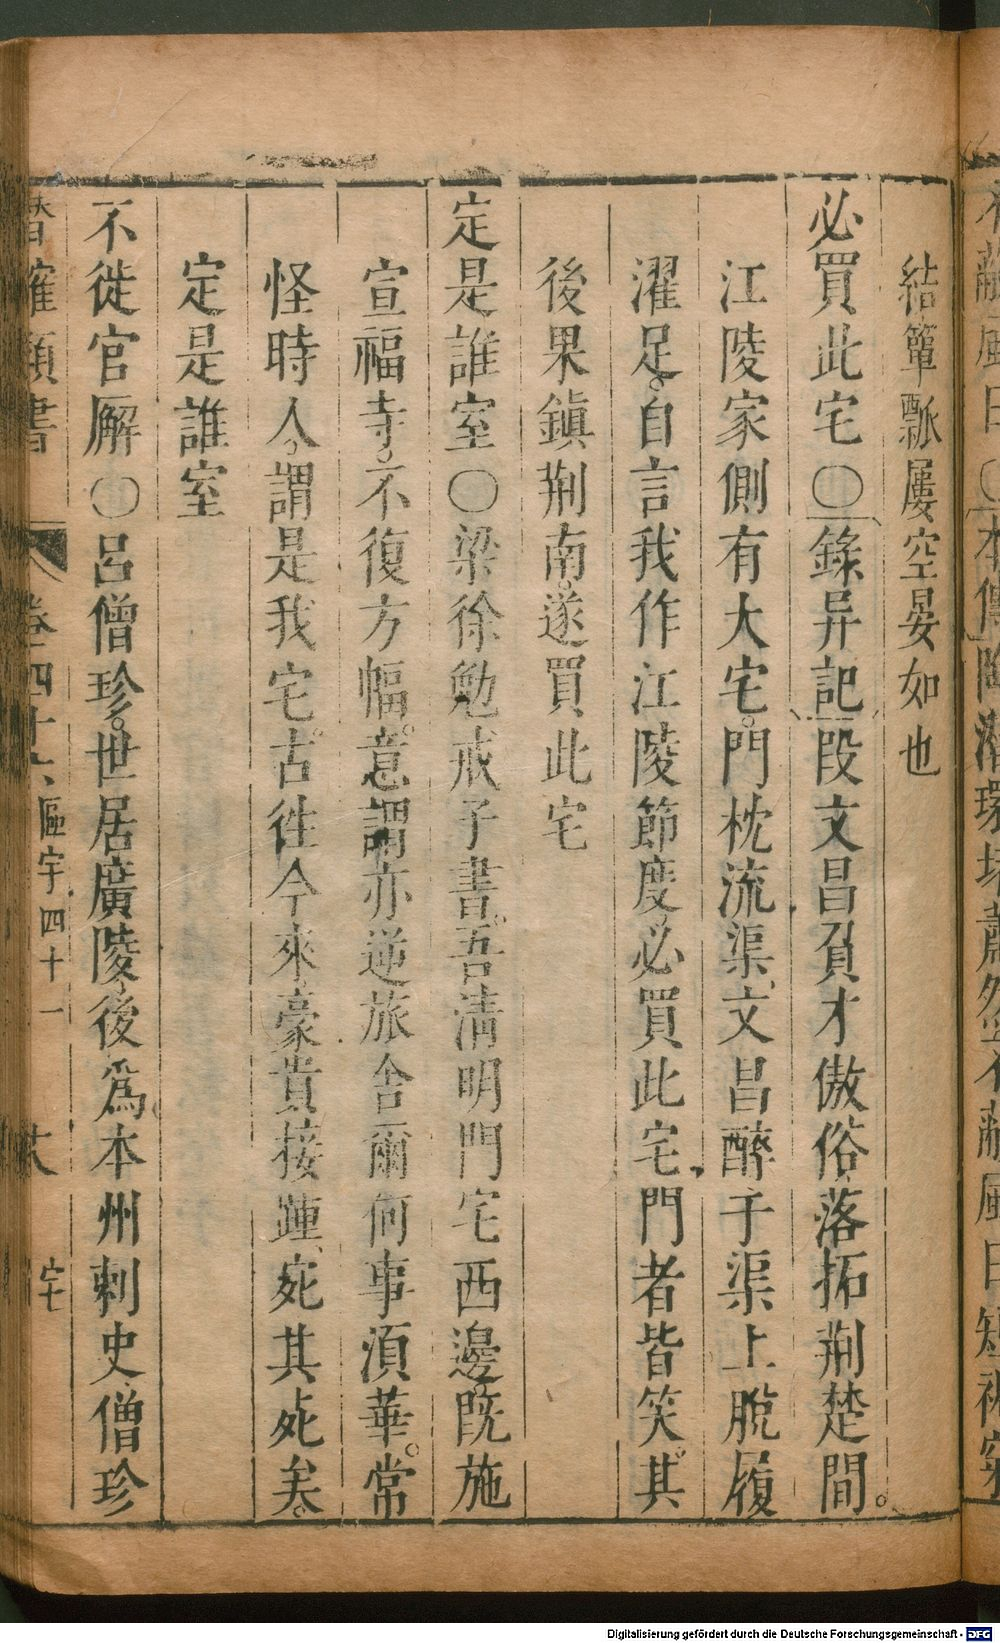 結簞瓢屢空晏如也
必買此宅〇錄异記段文昌負才傲俗落拓荆楚間。
江陵家側有大宅。門枕流渠、文昌醉于渠上脫履
濯足。自言我作江陵節度必買此宅、門者皆笑。其
後果鎮荆南。遂買此宅
定是誰室〇梁徐勉戒子書。吾清明門宅西邊既施
宣福寺。不復方幅。意謂亦逆旅舍爾何事須華。常
怪時人。謂是我宅。古徃今來、豪貴接踵、宛其死矣。
定是誰室
不徙官廨〇呂僧珍。世居廣陵、後爲本州刺史僧珍
卷四十六 區宇四十一 宅
Digitalisierung gefördert durch die Deutsche Forschungsgemeinschaft - DFG